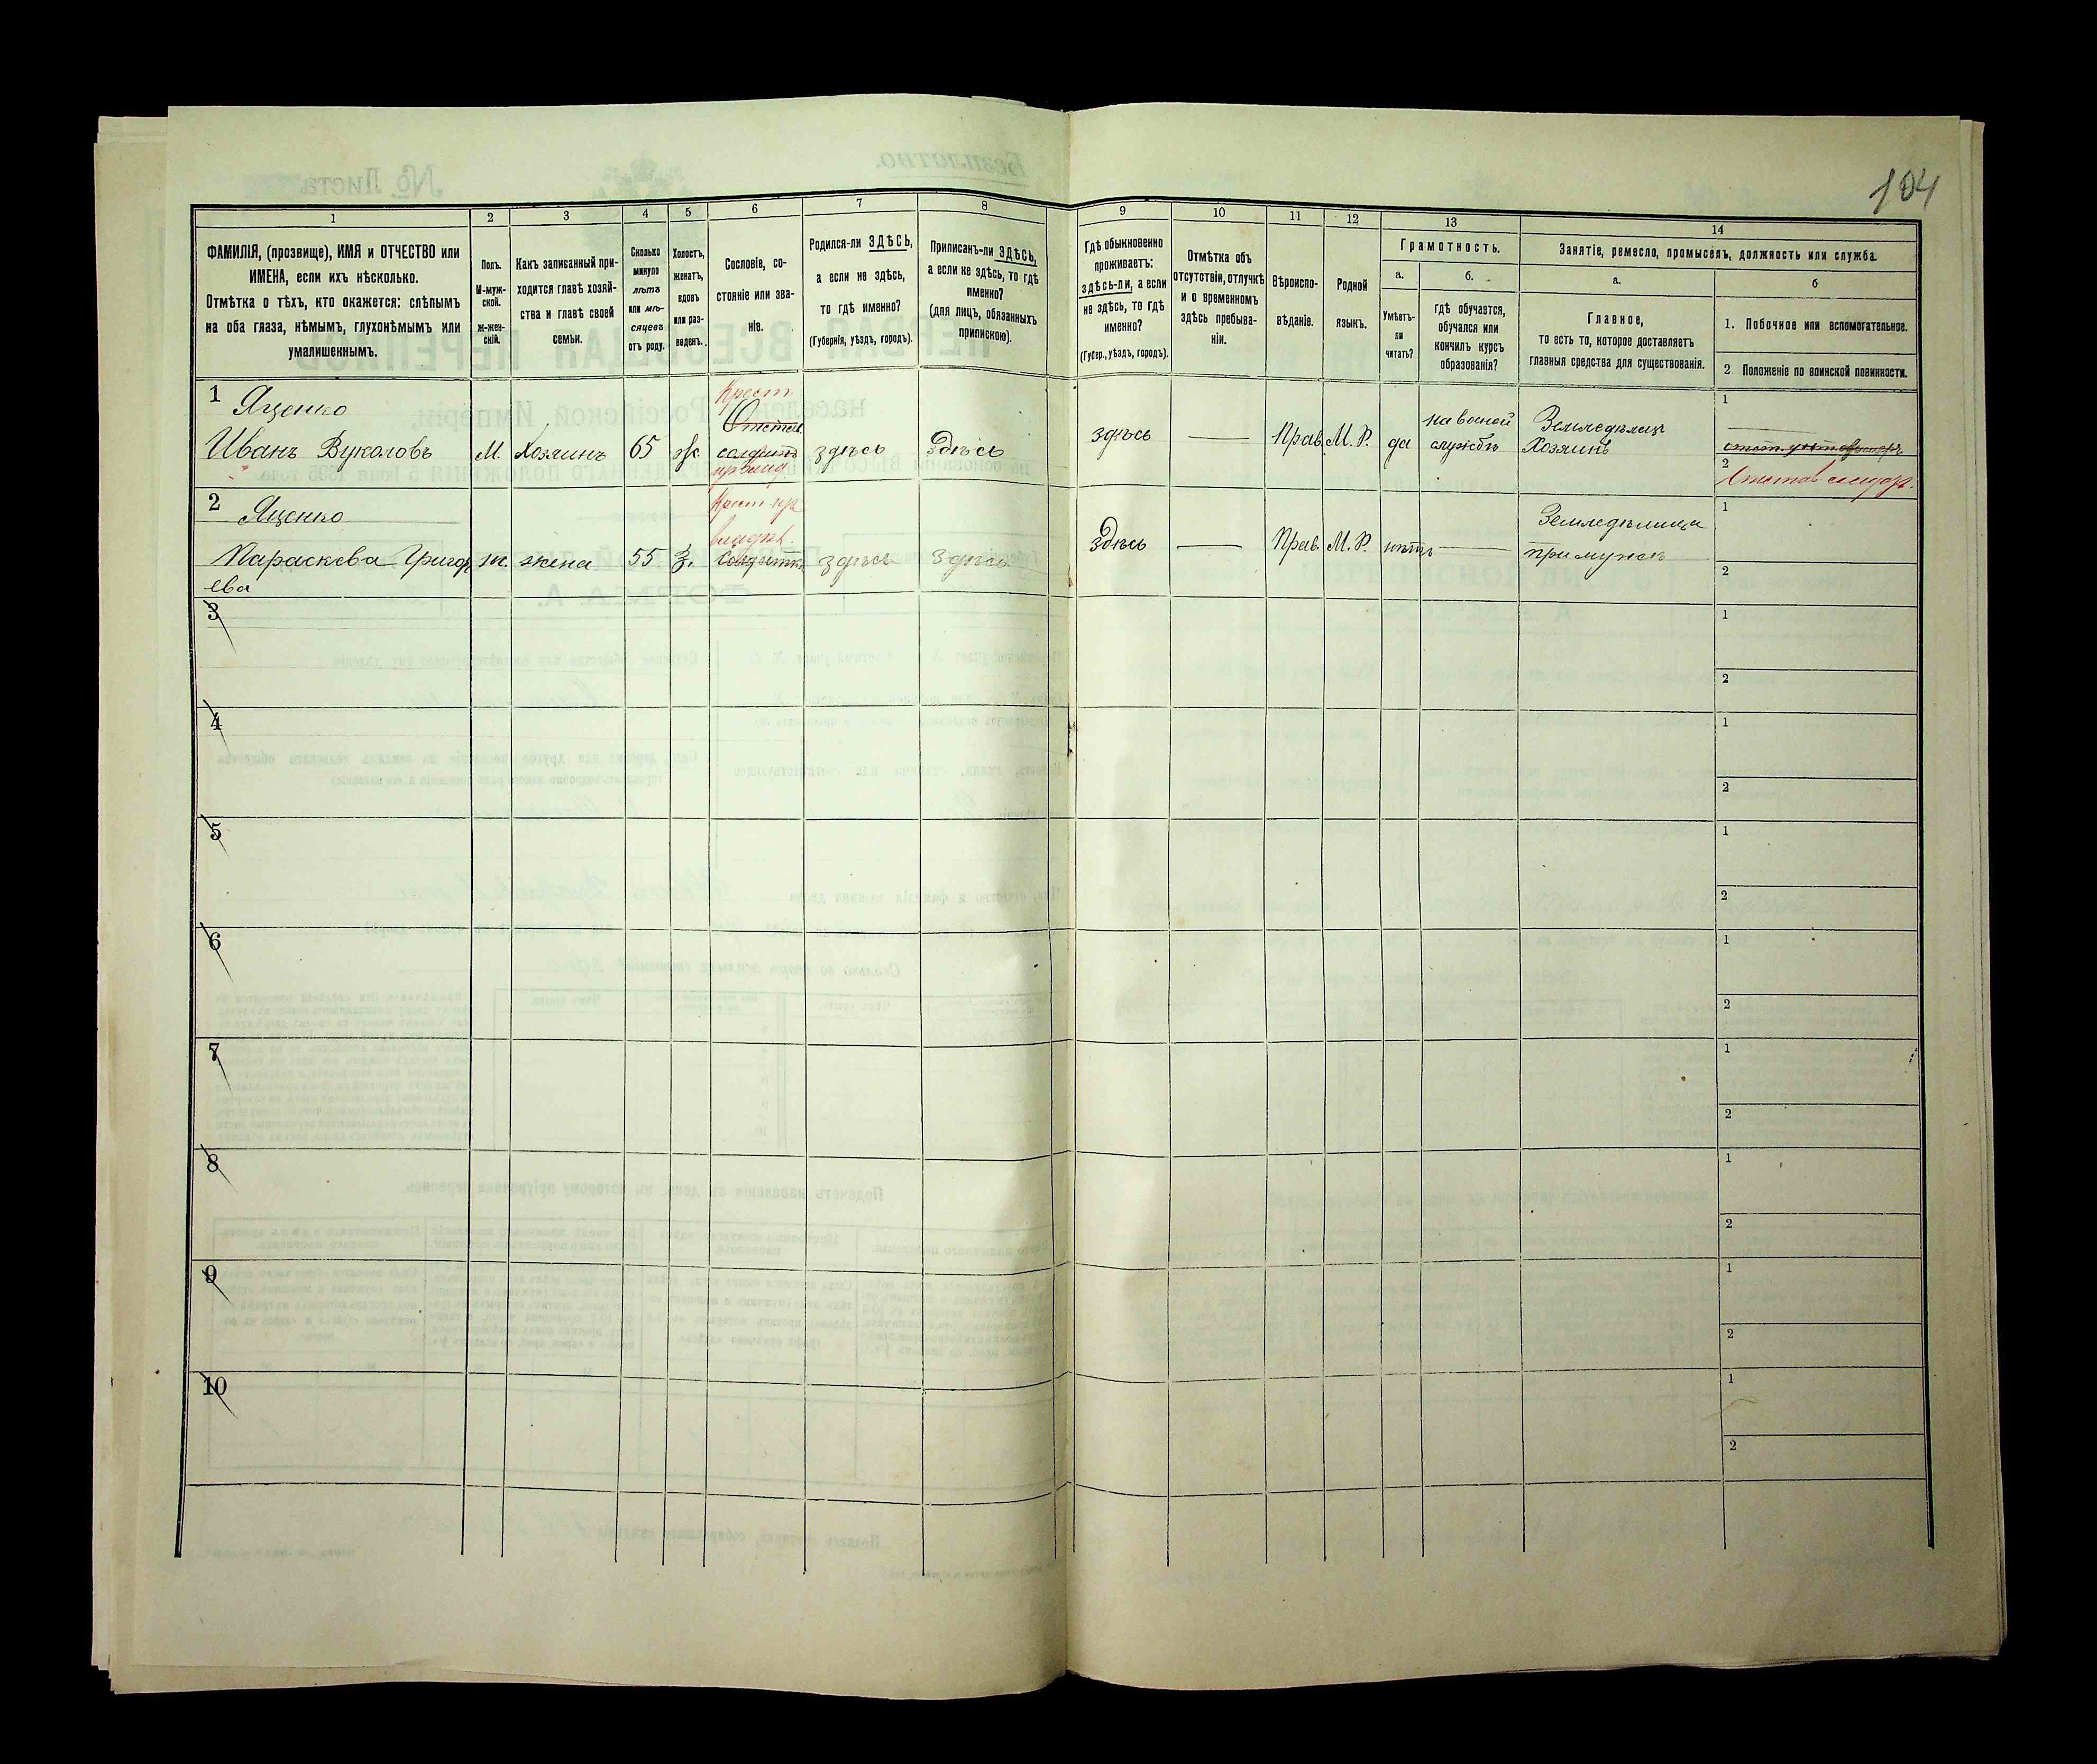 104
1
2
3
4
5
6
7
8
9
10
11
12
13
14
ФАМИЛІЯ, (прозвище), ИМЯ и ОТЧЕСТВО или
ИМЕНА, если ихъ нѣсколько.
Отмѣтка о тѣхъ, кто окажется: слѣпымъ
на оба глаза, нѣмымъ, глухонѣмымъ или
умалишеннымъ.
Полъ.
М-муж-
ской.
ж-жен-
скій.
Какъ записанный при-
ходится главѣ хозяй-
ства и главѣ своей
семьи.
Сколько
минуло
лѣтъ
или мѣ-
сяцевъ
отъ роду.
Холостъ,
женатъ,
вдовъ
или раз-
веденъ.
Сословіе, со-
стояніе или зва-
ніе.
Родился-ли ЗДѢСЬ,
а если не здѣсь,
то гдѣ именно?
(Губернія, уѣздъ, городъ).
Приписанъ-ли ЗДѢСЬ,
а если не здѣсь, то гдѣ
именно?
(для лицъ, обязанныхъ
припискою).
Гдѣ обыкновенно
проживаетъ:
здѣсь-ли, а если
не здѣсь, то гдѣ
именно?
(Губер., уѣздъ, городъ).
Отмѣтка объ
отсутствіи, отлучкѣ
и о временномъ
здѣсь пребыва-
ніи.
Вѣроиспо-
вѣданіе.
Родной
языкъ.
Грамотность.
а.
Умѣетъ-
ли
читать?
б.
Гдѣ обучается,
обучался или
кончилъ курсъ
образованія?
Занятіе, ремесло, промыселъ, должность или служба.
а.
Главное,
то есть то, которое доставляетъ
главныя средства для существованія.
б
1. Побочное или вспомогательное.
2. Положеніе по воинской повинности.
1
Яценко
Иванъ Вуколовъ
М.
Хозяинъ
65
ж.
Крест.
Отстав.
солдатъ
здѣсь
Здѣсь
здѣсь
Прав.
М. Р.
да
на воєной
службѣ
Земледѣлецъ
Хозяинъ
1
2
2
Яценко
Параскева Григор
ева
ж.
жена
55
з.
Крест.
владѣл.
здѣсь
Здѣсь
Здѣсь
Прав.
М. Р.
нѣтъ
Земледѣлица
при мужѣ
1
2
3
1
2
4
1
2
5
1
2
6
1
2
7
1
2
8
1
2
9
1
2
10
1
2